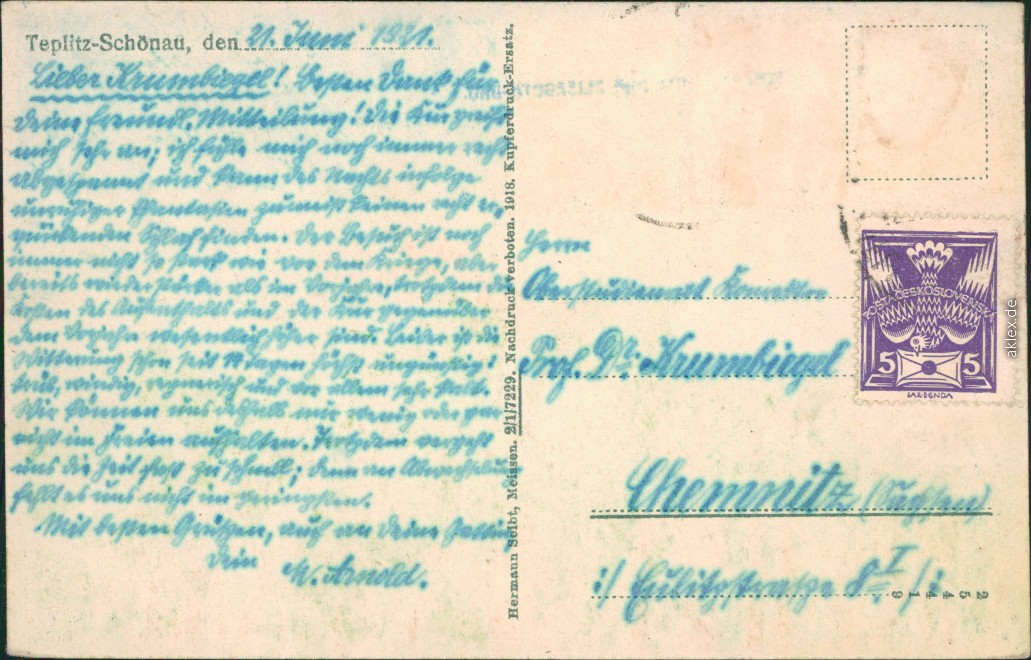 Teplitz-Schönau, den 21. Juni 1921.
Lieber Krumbiegel! Besten Dank für
deine freundl. Mitteilung! Die Kur
mich sehr an; ich fühle mich noch immer recht
abgespannt und kann des Nachts infolge
unruhiger Phantasien zumeist keinen recht er-
quickenden Schlaf finden. Der Besuch ist noch
immer nicht so stark wie vor dem Kriege, aber
bereits wieder stärker als im Vorjahre, trotzdem die
Kosten des Aufenthalts und der Kur gegenüber
dem Vorjahre sind. Leider ist die
Witterung schon seit Wochen höchst ungünstig:
trüb, windig, regnerisch und vor allem sehr kalt.
Wir können uns deshalb nur wenig oder gar
nicht im Freien aufhalten. Trotzdem vergeht
uns die Zeit fast zu schnell; denn an Abwechslung
fehlt es uns nicht im geringsten.
Mit besten Grüßen, auch an deine Gattin
Dein M. Arnold.
Hermann Seibt, Meissen. 2/1/7229. Nachdruck verboten. 1918. Kupferdruck-Ersatz.
POSTA ČESKOSLOVENSKÁ
5 5
Herrn
Oberstudienrat Konrektor
Prof. Dr. Krumbiegel
Chemnitz (Sachsen)
:/ 8 I /:
aklex.de